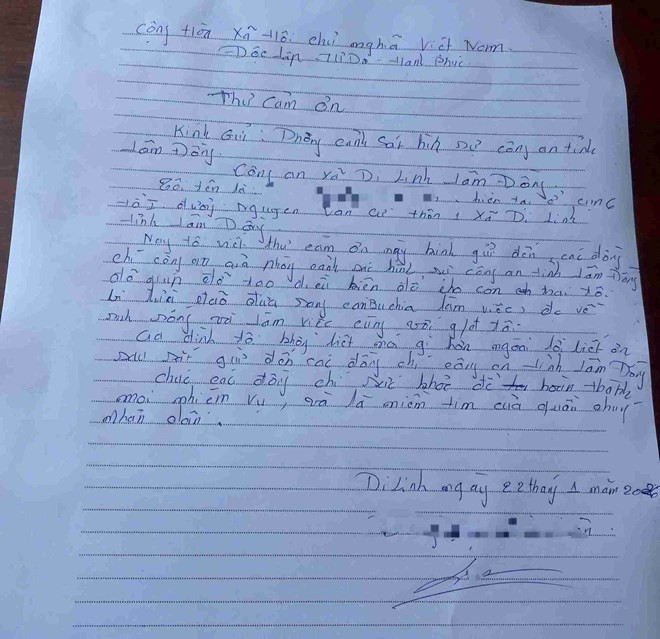 Cộng Hòa Xã Hội Chủ nghĩa Việt Nam.
Độc lập Tự Do Hạnh Phúc.
Thư Cảm ơn
Kính Gửi: Phòng cảnh Sát hình sự công an tỉnh
Lâm Đồng.
Công an xã Di Linh Lâm Đồng.
Tôi tên là hiện tại ở cùng
tổ 7 đường Nguyễn Văn cừ thôn 1 xã Di Linh
tỉnh Lâm Đồng
Nay tô viết thư cảm ơn này kính gửi đến các đồng
chí công an của phòng cảnh sát hình sự công an tỉnh Lâm Đồng
đã giúp đỡ tạo điều kiện để cho con trai tô.
bị lừa đảo đưa sang canBuchia làm việc, đc về
sinh sống và làm việc cùng với g/đ tô.
Gia đình tô không biết nói gì hơn ngoài lò biết ơn
sâu sắc gửi đến các đồng chí công an tỉnh Lâm Đồng
chúc các đồng chí sức khỏe để hoàn thành
mọi nhiệm vụ, và là niềm tim của quần chúng
nhân dân.
Di Linh ngày 22 tháng 1 năm 2026